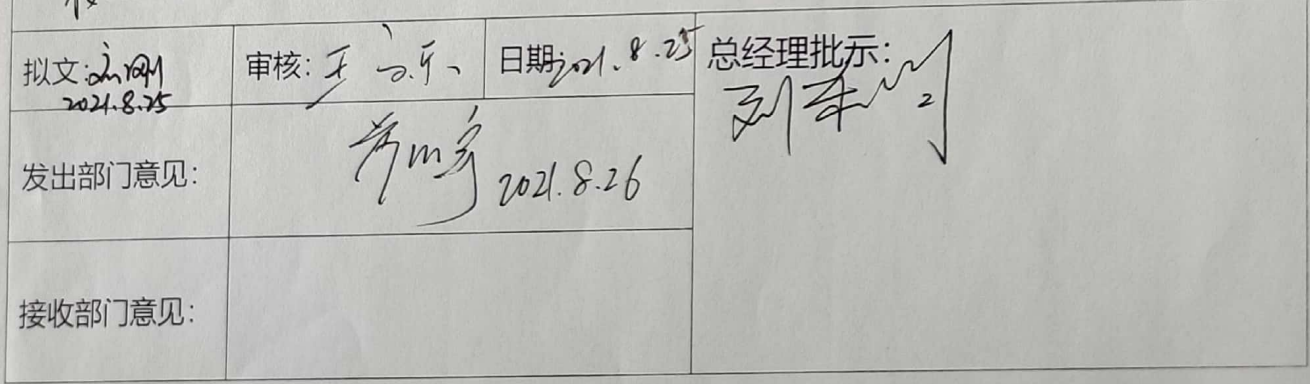 拟文:
2021.8.25
审核: 王
日期: 2021.8.25
总经理批示:
发出部门意见:
2021.8.26
接收部门意见: